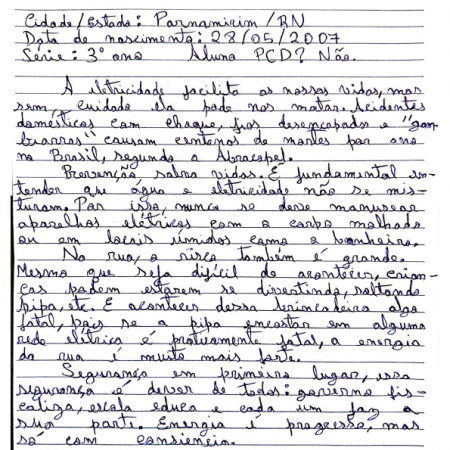 Cidade/Estado: Parnamirim/RN
Data de nascimento: 28/05/2007
Série: 3º ano Aluna PCD? Não.
A eletricidade facilita as nossas vidas, mas
sem cuidado ela pode nos matar. Acidentes
domésticos com choque, fios desencapados e "gam-
biarras" causam centenas de mortes por ano
no Brasil, segundo a Abracopel.
Prevenção salva vidas. É fundamental en-
tender que água e eletricidade não se mis-
turam. Por isso, nunca se deve manusear
aparelhos elétricos com o corpo molhado
ou em locais úmidos como o banheiro.
Na rua, o risco também é grande.
Mesmo que seja difícil de acontecer, crian-
ças podem estarem se divertindo, soltando
pipa, etc. E acontecer dessa brincadeira algo
fatal, pois se a pipa encostar em alguma
rede elétrica é praticamente fatal, a energia
da rua é muito mais forte.
Segurança em primeiro lugar, essa
segurança é dever de todos: governo fis-
caliza, escola educa e cada um faz a
sua parte. Energia é progresso, mas
só com consiencia.